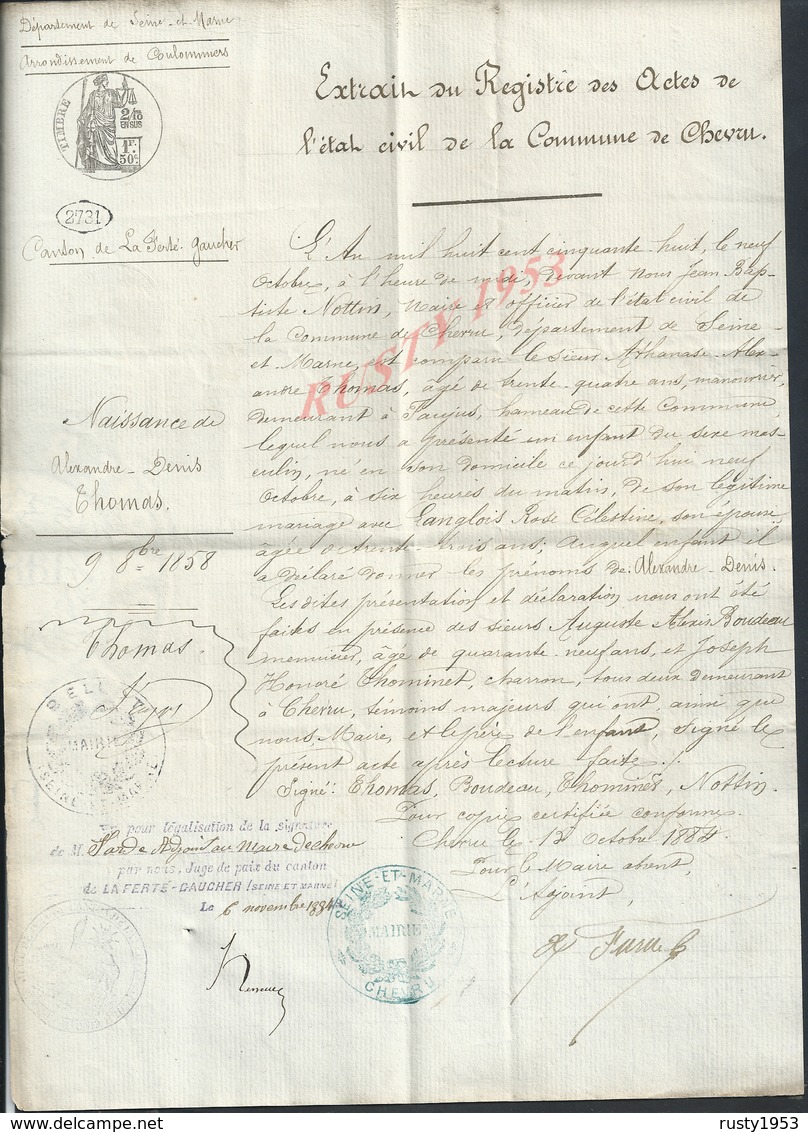 Département de Seine-et-Marne
Arrondissement de Coulommiers
TIMBRE
2/10
EN SUS
1F.
50c
2731
Canton de La Ferté-gaucher
Extrait du Registre des Actes de
l'état civil de la Commune de Chevru.
Naissance de
Alexandre-Denis
Thomas.
9 8bre 1858
Thomas.
L'An mil huit cent cinquante-huit, le neuf
Octobre, à l'heure de midi, devant nous Jean Bap-
tiste Nottin, Maire et officier de l'état civil de
la Commune de Chevru, département de Seine-
et-Marne, est comparu le sieur Athanase-Alex-
andre Thomas, âgé de trente-quatre ans, manouvrier,
demeurant à Faujus, hameau de cette Commune,
lequel nous a présenté un enfant du sexe mas-
culin, né en son domicile ce jourd'hui neuf
Octobre, à six heures du matin, de son légitime
mariage avec Langlois Rose Célestine, son épouse,
âgée de trente-trois ans; Auquel enfant il
a déclaré donner les prénoms de Alexandre-Denis.
Les dites présentation et déclaration nous ont été
faites en présence des sieurs Auguste Alexis Boudeau
menuisier, âgé de quarante-neuf ans, et Joseph
Honoré Thominet, charron, tous deux demeurant
à Chevru, témoins majeurs qui ont, ainsi que
nous, Maire, et le père de l'enfant, signé le
présent acte après lecture faite.
Signé: Thomas, Boudeau, Thominet, Nottin.
Pour copie certifiée conforme
Chevru le 12 Octobre 1884.
Pour le Maire absent,
L'Adjoint,
MAIRIE
SEINE-ET-MARNE
pour légalisation de la signature
de M. Adjoint au Maire de chevru
par nous, Juge de paix du canton
de LA FERTÉ-GAUCHER (SEINE ET MARNE)
Le 6 novembre 1884
SEINE-ET-MARNE
MAIRIE
CHEVRU
RUSTY 1953
delcampe.net
rusty1953